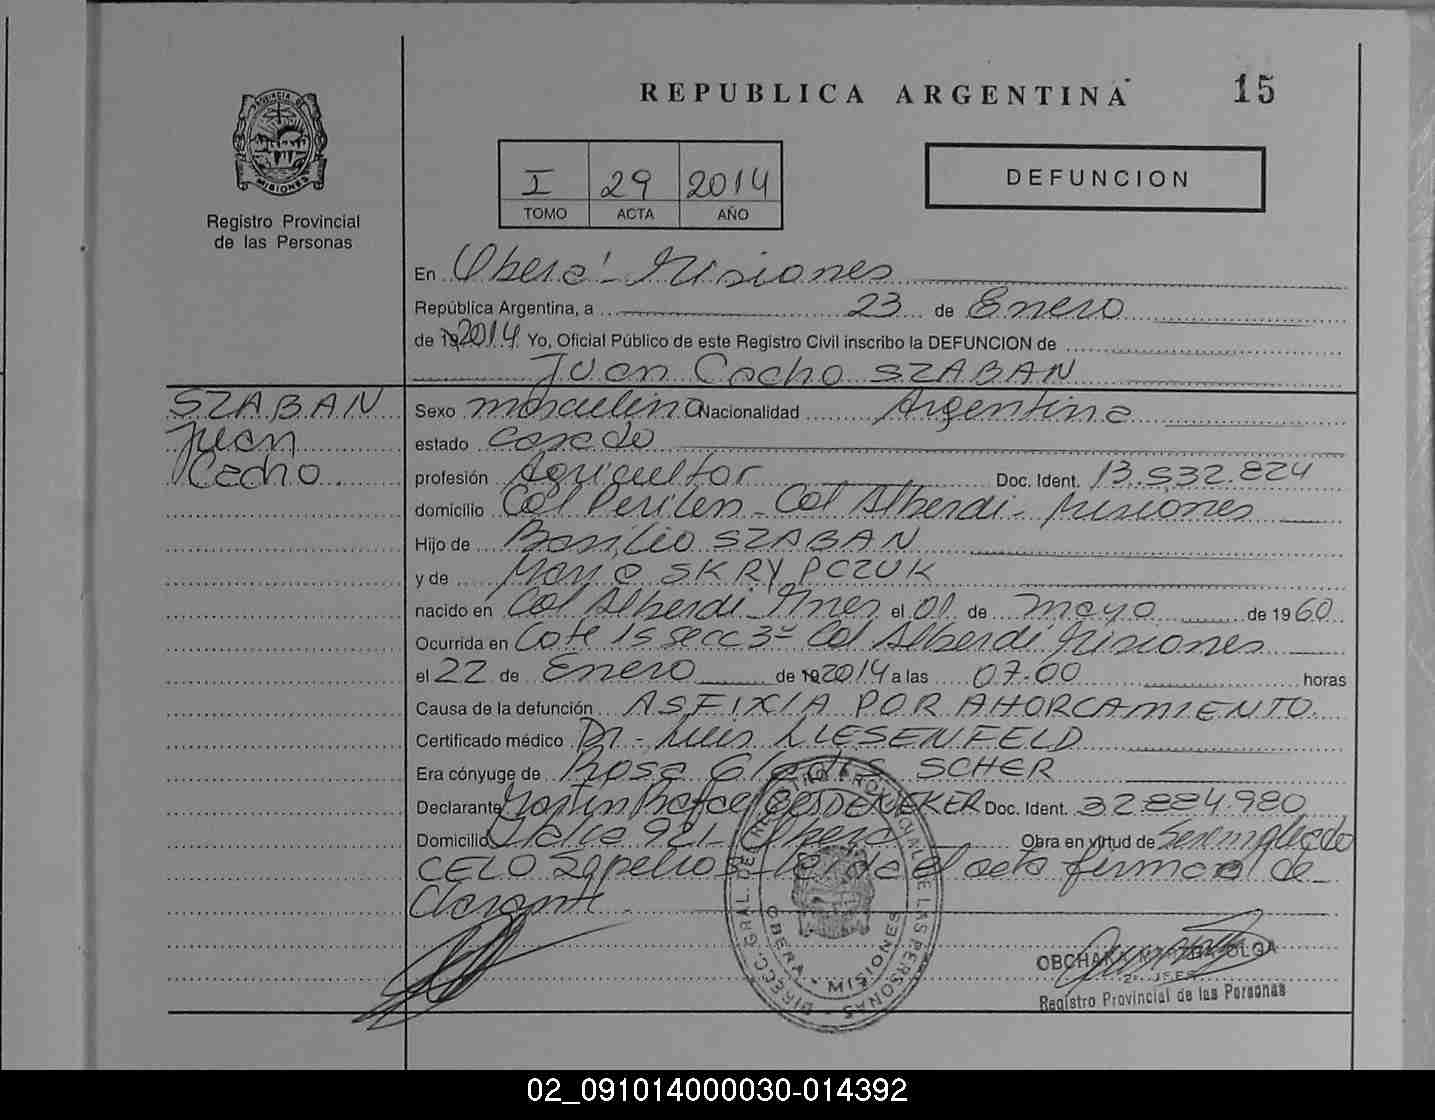 REPUBLICA ARGENTINA 15
PROVINCIA DE MISIONES
Registro Provincial
de las Personas
I 29 2014
TOMO ACTA AÑO
DEFUNCION
En Oberá - Misiones
República Argentina, a 23 de Enero
de 192014 Yo, Oficial Público de este Registro Civil inscribo la DEFUNCION de
Juan Cacho SZABAN
SZABAN
Juan
Cacho
Sexo masculino Nacionalidad Argentina
estado casado
profesión Agricultor Doc. Ident. 13.532.824
domicilio Col Alberdi - Misiones
Hijo de Basilio SZABAN
y de Maria SKRYPCZUK
nacido en Col Alberdi Mnes el 01 de mayo de 1960
Ocurrida en Lote 15 secc 3ª Col Alberdi Misiones
el 22 de Enero de 192014 a las 07.00 horas
Causa de la defunción ASFIXIA POR AHORCAMIENTO
Certificado médico Dr - Luis LIESENFELD
Era cónyuge de Rosa Gladis SCHER
Declarante Martin Rafael Doc. Ident. 32.884.980
Domicilio 921 - Obera Obra en virtud de Ser empleado
CELO Sepelios - Leida el acta firma el de
clarante
DIREC. GRAL. DEL REGISTRO PROVINCIAL DE LAS PERSONAS
OBERA - MISIONES
OBCHAKA OLGA
2º JEFE
Registro Provincial de las Personas
02_091014000030-014392